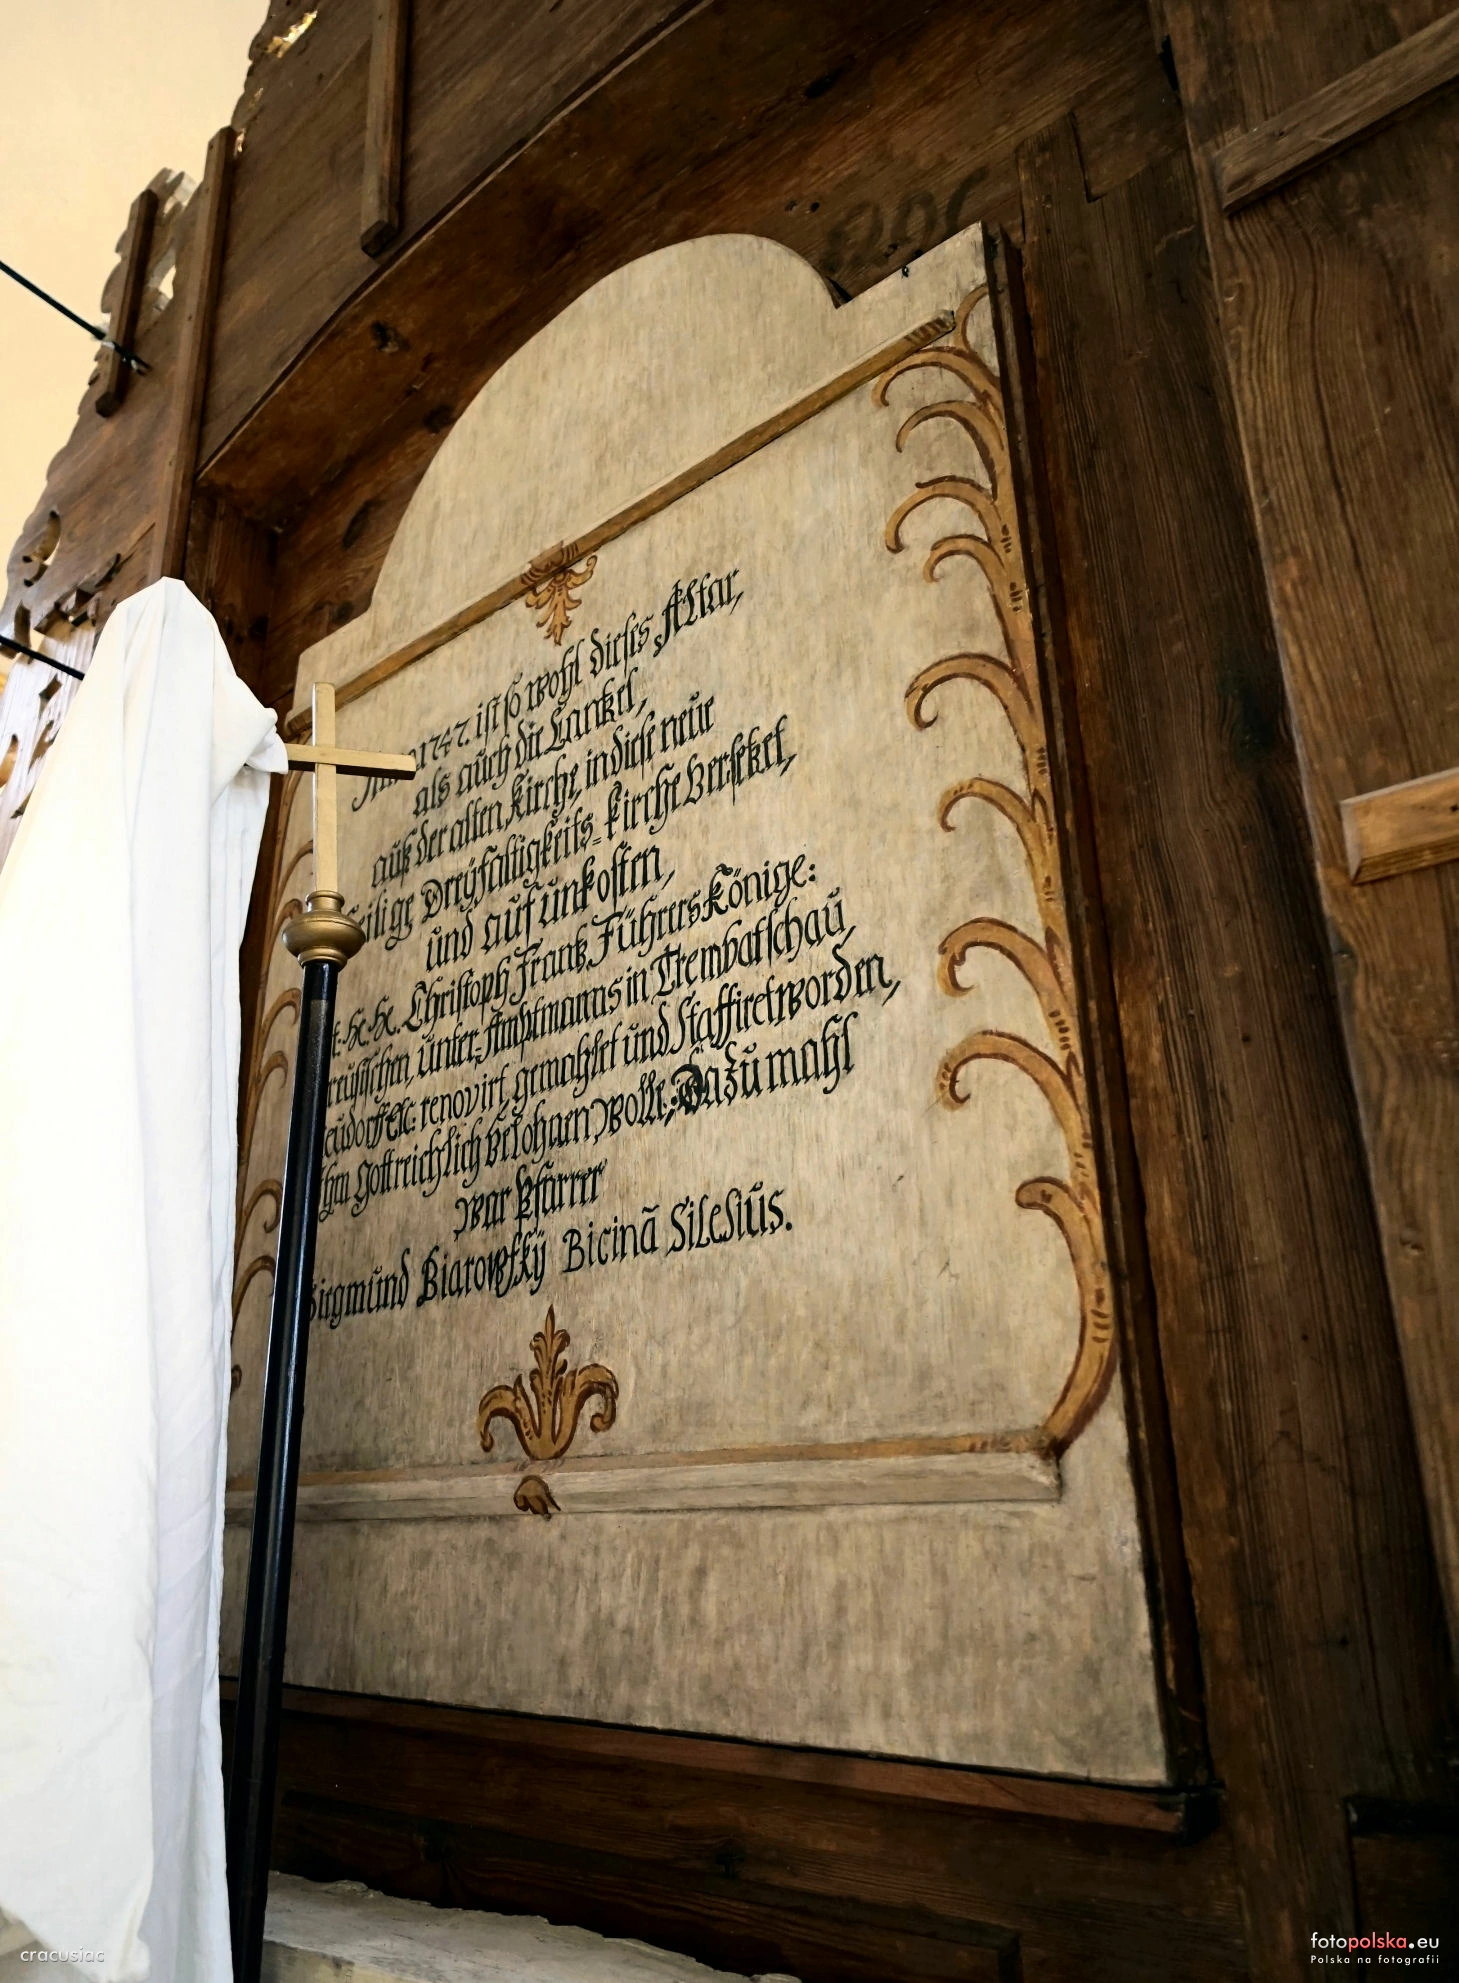 1747. ist so wohl dieses Altar,
als auch die Cantzel,
auß der alten Kirche, in diese neue
heilige Dreyfaltigkeits=Kirche versetzet,
und auf unkosten,
Christoph Frantz Führers Könige:
unter=Amptmanns in Trembatschau,
renovirt, gemahlet und Staffiret worden,
Gott reichlich belohnen wolle; Dazumahl
war Pfarrer
Biarowsky Bicinã Silesius.
cracusiac
fotopolska.eu
Polska na fotografii